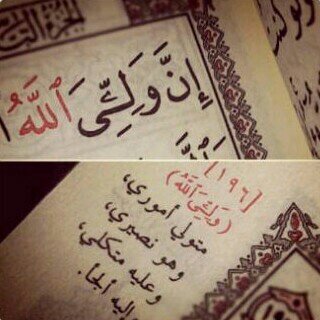 إِنَّ وَلِـِّۧيَ ٱللَّهُ
[١٩٦]
(وَلِـِّۧيَ ٱللَّهُ)
متولي أموري،
وهو نصيري،
وعليه متكلي،
وإليه ألجأ.